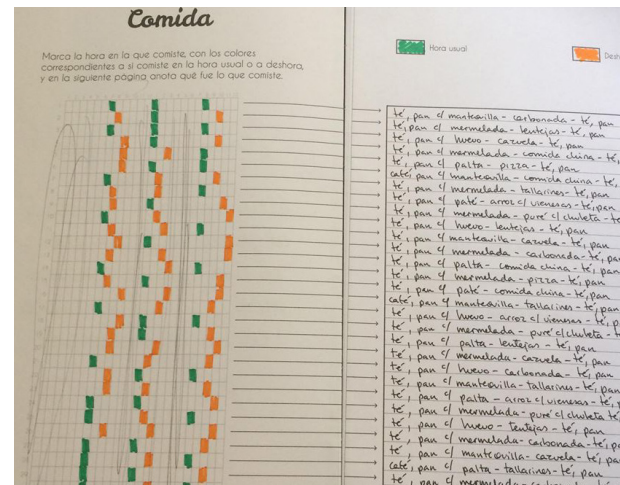 Comida
Marca la hora en la que comiste, con los colores
correspondientes a si comiste en la hora usual o a deshora,
y en la siguiente página anota qué fue lo que comiste.
Hora usual
té, pan c/ mantequilla - carbonada - té, pan
té, pan c/ mermelada - lentejas - té, pan
té, pan c/ huevo - cazuela - té, pan
té, pan c/ mermelada - comida china - té,
té, pan c/ palta - pizza - té, pan
café, pan c/ mantequilla - comida china - té,
té, pan c/ mermelada - tallarines - té, pan
té, pan c/ paté - arroz c/ vienesas - té, pan
té, pan c/ mermelada - puré c/ chuleta - té
té, pan c/ huevo - lentejas - té, pan
té, pan c/ mantequilla - cazuela - té, pan
té, pan c/ mermelada - carbonada - té, pan
té, pan c/ palta - comida china - té, pan
té, pan c/ mermelada - pizza - té, pan
té, pan c/ paté - comida china - té, pan
café, pan c/ mantequilla - tallarines - té, pan
té, pan c/ huevo - arroz c/ vienesas - té, p
té, pan c/ mermelada - puré c/ chuleta - t
té, pan c/ palta - lentejas - té, pan
té, pan c/ mermelada - cazuela - té, pan
té, pan c/ huevo - carbonada - té, pan
té, pan c/ mantequilla - tallarines - té, pan
té, pan c/ palta - arroz c/ vienesas - té,
té, pan c/ mermelada - puré c/ chuleta té,
té, pan c/ huevo - lentejas - té, pan
té, pan c/ mermelada - carbonada - té, p
té, pan c/ mantequilla - cazuela - té, pa
café, pan c/ palta - tallarines - té, pan
té, pan c/ mermelada